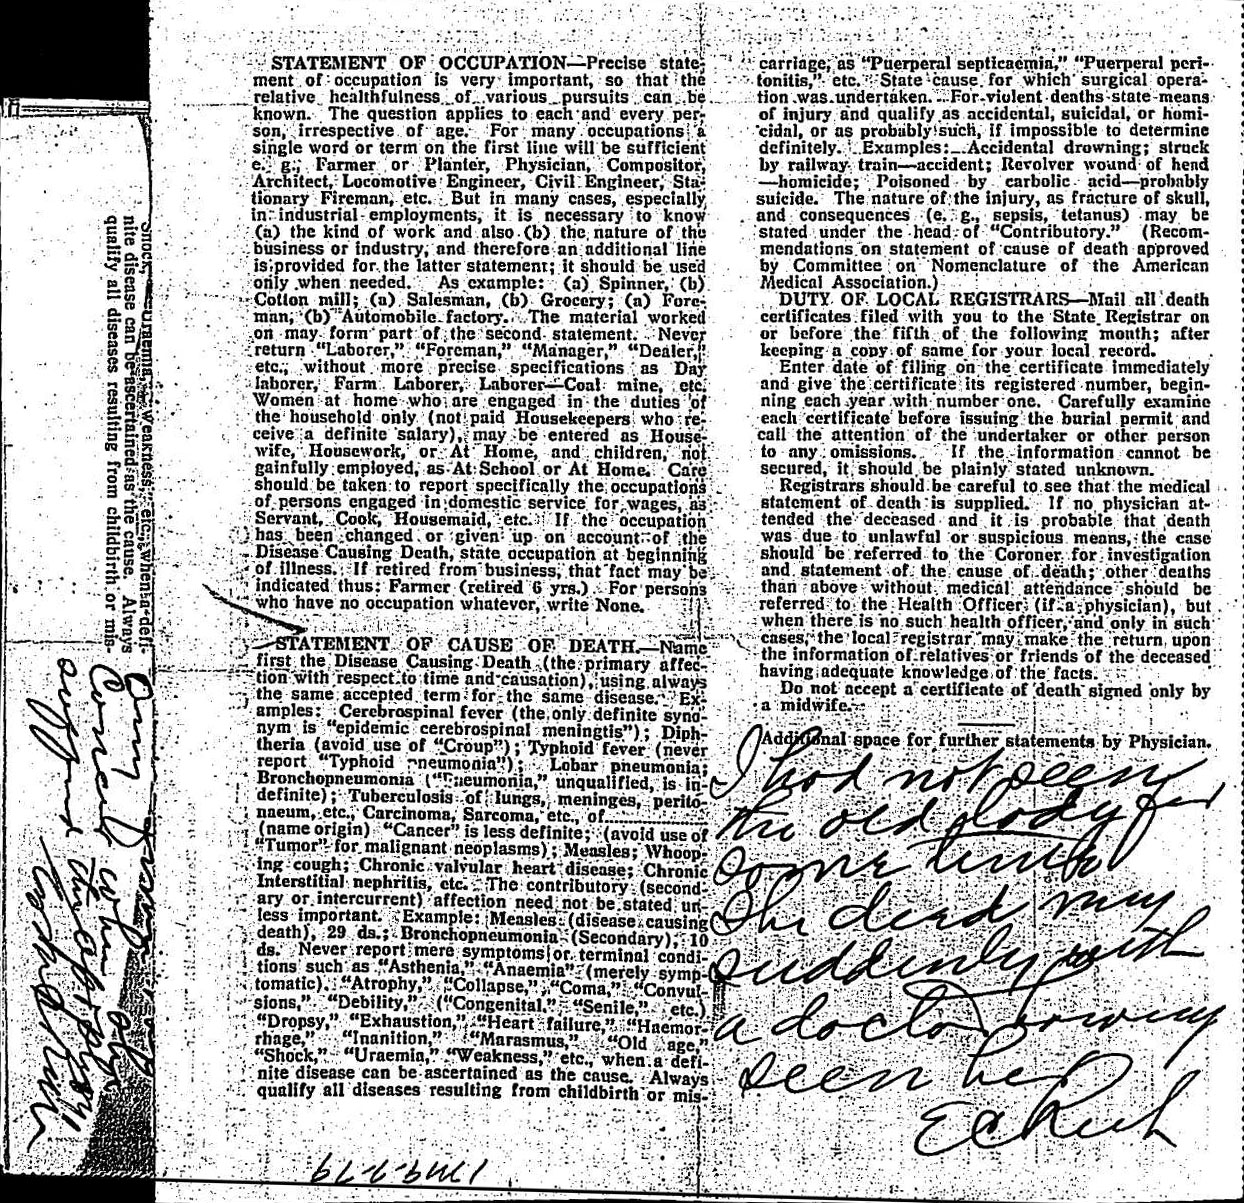 STATEMENT OF OCCUPATION—Precise state-
ment of occupation is very important, so that the
relative healthfulness of various pursuits can be
known. The question applies to each and every per-
son, irrespective of age. For many occupations a
single word or term on the first line will be sufficient
e. g., Farmer or Planter, Physician, Compositor,
Architect, Locomotive Engineer, Civil Engineer, Sta-
tionary Fireman, etc. But in many cases, especially
in industrial employments, it is necessary to know
(a) the kind of work and also (b) the nature of the
business or industry, and therefore an additional line
is provided for the latter statement; it should be used
only when needed. As example: (a) Spinner, (b)
Cotton mill; (a) Salesman, (b) Grocery; (a) Fore-
man, (b) Automobile factory. The material worked
on may form part of the second statement. Never
return "Laborer," "Foreman," "Manager," "Dealer,"
etc., without more precise specifications as Day
laborer, Farm Laborer, Laborer—Coal mine, etc.
Women at home who are engaged in the duties of
the household only (not paid Housekeepers who re-
ceive a definite salary), may be entered as House-
wife, Housework, or At Home, and children, not
gainfully employed, as At School or At Home. Care
should be taken to report specifically the occupations
of persons engaged in domestic service for wages, as
Servant, Cook, Housemaid, etc. If the occupation
has been changed or given up on account of the
Disease Causing Death, state occupation at beginning
of illness. If retired from business, that fact may be
indicated thus: Farmer (retired 6 yrs.) For persons
who have no occupation whatever, write None.
STATEMENT OF CAUSE OF DEATH.—Name
first the Disease Causing Death (the primary affec-
tion with respect to time and causation), using always
the same accepted term for the same disease. Ex-
amples: Cerebrospinal fever (the only definite syno-
nym is "epidemic cerebrospinal meningtis"); Diph-
theria (avoid use of "Croup"); Typhoid fever (never
report "Typhoid pneumonia"); Lobar pneumonia;
Bronchopneumonia ("Pneumonia," unqualified, is in-
definite); Tuberculosis of lungs, meninges, perito-
naeum, etc., Carcinoma, Sarcoma, etc., of
(name origin) "Cancer" is less definite; (avoid use of
"Tumor" for malignant neoplasms); Measles; Whoop-
ing cough; Chronic valvular heart disease; Chronic
Interstitial nephritis, etc. The contributory (second-
ary or intercurrent) affection need not be stated un-
less important. Example: Measles (disease causing
death), 29 ds.; Bronchopneumonia (Secondary), 10
ds. Never report mere symptoms or terminal condi-
tions such as "Asthenia," "Anaemia" (merely symp-
tomatic). "Atrophy," "Collapse," "Coma," "Convul-
sions," "Debility," ("Congenital," "Senile," etc.)
"Dropsy," "Exhaustion," "Heart failure," "Haemor-
rhage," "Inanition," "Marasmus," "Old age,"
"Shock," "Uraemia," "Weakness," etc., when a defi-
nite disease can be ascertained as the cause. Always
qualify all diseases resulting from childbirth or mis-
carriage, as "Puerperal septicaemia," "Puerperal peri-
tonitis," etc. State cause for which surgical opera-
tion was undertaken. For violent deaths state means
of injury and qualify as accidental, suicidal, or homi-
cidal, or as probably such, if impossible to determine
definitely. Examples: Accidental drowning; struck
by railway train—accident; Revolver wound of head
—homicide; Poisoned by carbolic acid—probably
suicide. The nature of the injury, as fracture of skull,
and consequences (e. g., sepsis, tetanus) may be
stated under the head of "Contributory." (Recom-
mendations on statement of cause of death approved
by Committee on Nomenclature of the American
Medical Association.)
DUTY OF LOCAL REGISTRARS—Mail all death
certificates filed with you to the State Registrar on
or before the fifth of the following month; after
keeping a copy of same for your local record.
Enter date of filing on the certificate immediately
and give the certificate its registered number, begin-
ning each year with number one. Carefully examine
each certificate before issuing the burial permit and
call the attention of the undertaker or other person
to any omissions. If the information cannot be
secured, it should be plainly stated unknown.
Registrars should be careful to see that the medical
statement of death is supplied. If no physician at-
tended the deceased and it is probable that death
was due to unlawful or suspicious means, the case
should be referred to the Coroner for investigation
and statement of the cause of death; other deaths
than above without medical attendance should be
referred to the Health Officer (if a physician), but
when there is no such health officer, and only in such
cases, the local registrar may make the return upon
the information of relatives or friends of the deceased
having adequate knowledge of the facts.
Do not accept a certificate of death signed only by
a midwife.
Additional space for further statements by Physician.
I had not seen
the old lady for
some time
She died very
suddenly with
a doctor
seen her
"Shock," "Uraemia," "Weakness," etc., when a defi-
nite disease can be ascertained as the cause. Always
qualify all diseases resulting from childbirth or mis-